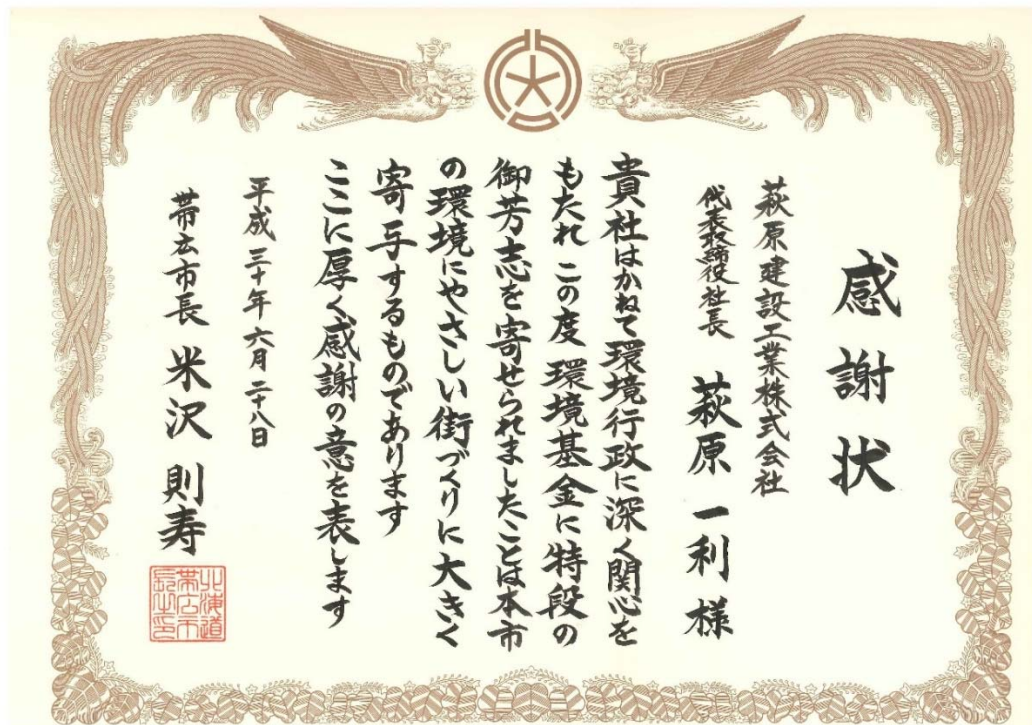 感謝状
萩原建設工業株式会社
代表取締役社長 萩原一利様
貴社はかねて環境行政に深く関心を
もたれ この度 環境基金に特段の
御芳志を寄せられましたことは本市
の環境にやさしい街づくりに大きく
寄与するものであります
ここに厚く感謝の意を表します
平成三十年六月二十八日
帯広市長 米沢則寿
北海道
帯広市
長之印